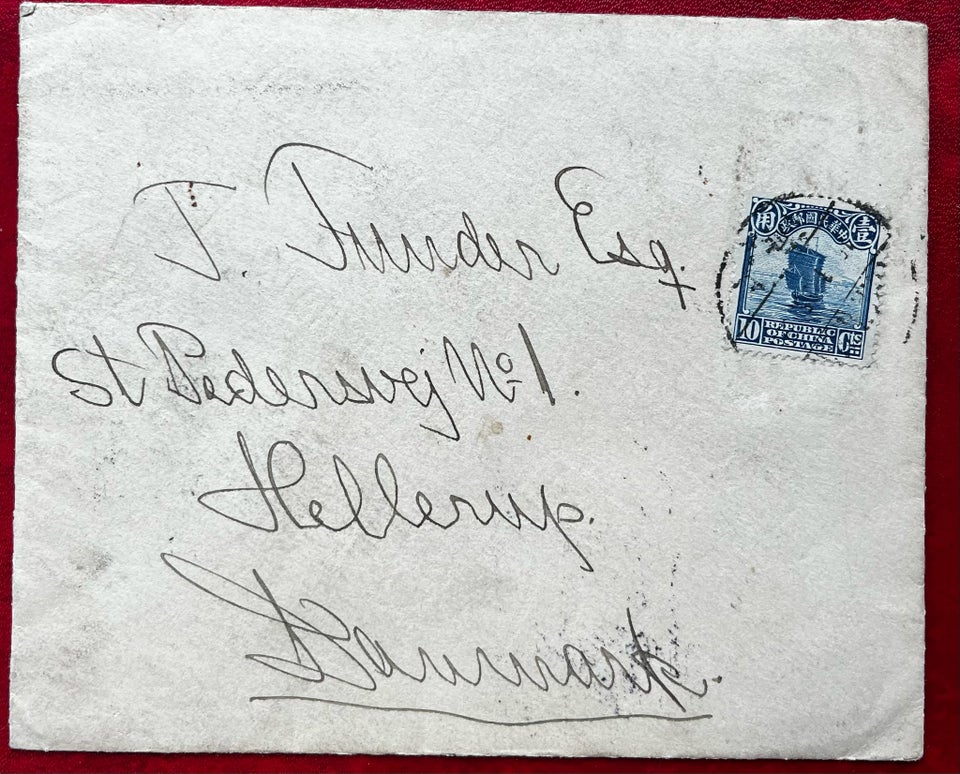 T. Funder Esq.
St Pedersvej No 1.
Hellerup.
Danmark.
角 政郵國民華中 壹
10 REPUBLIC OF CHINA POSTAGE Cts